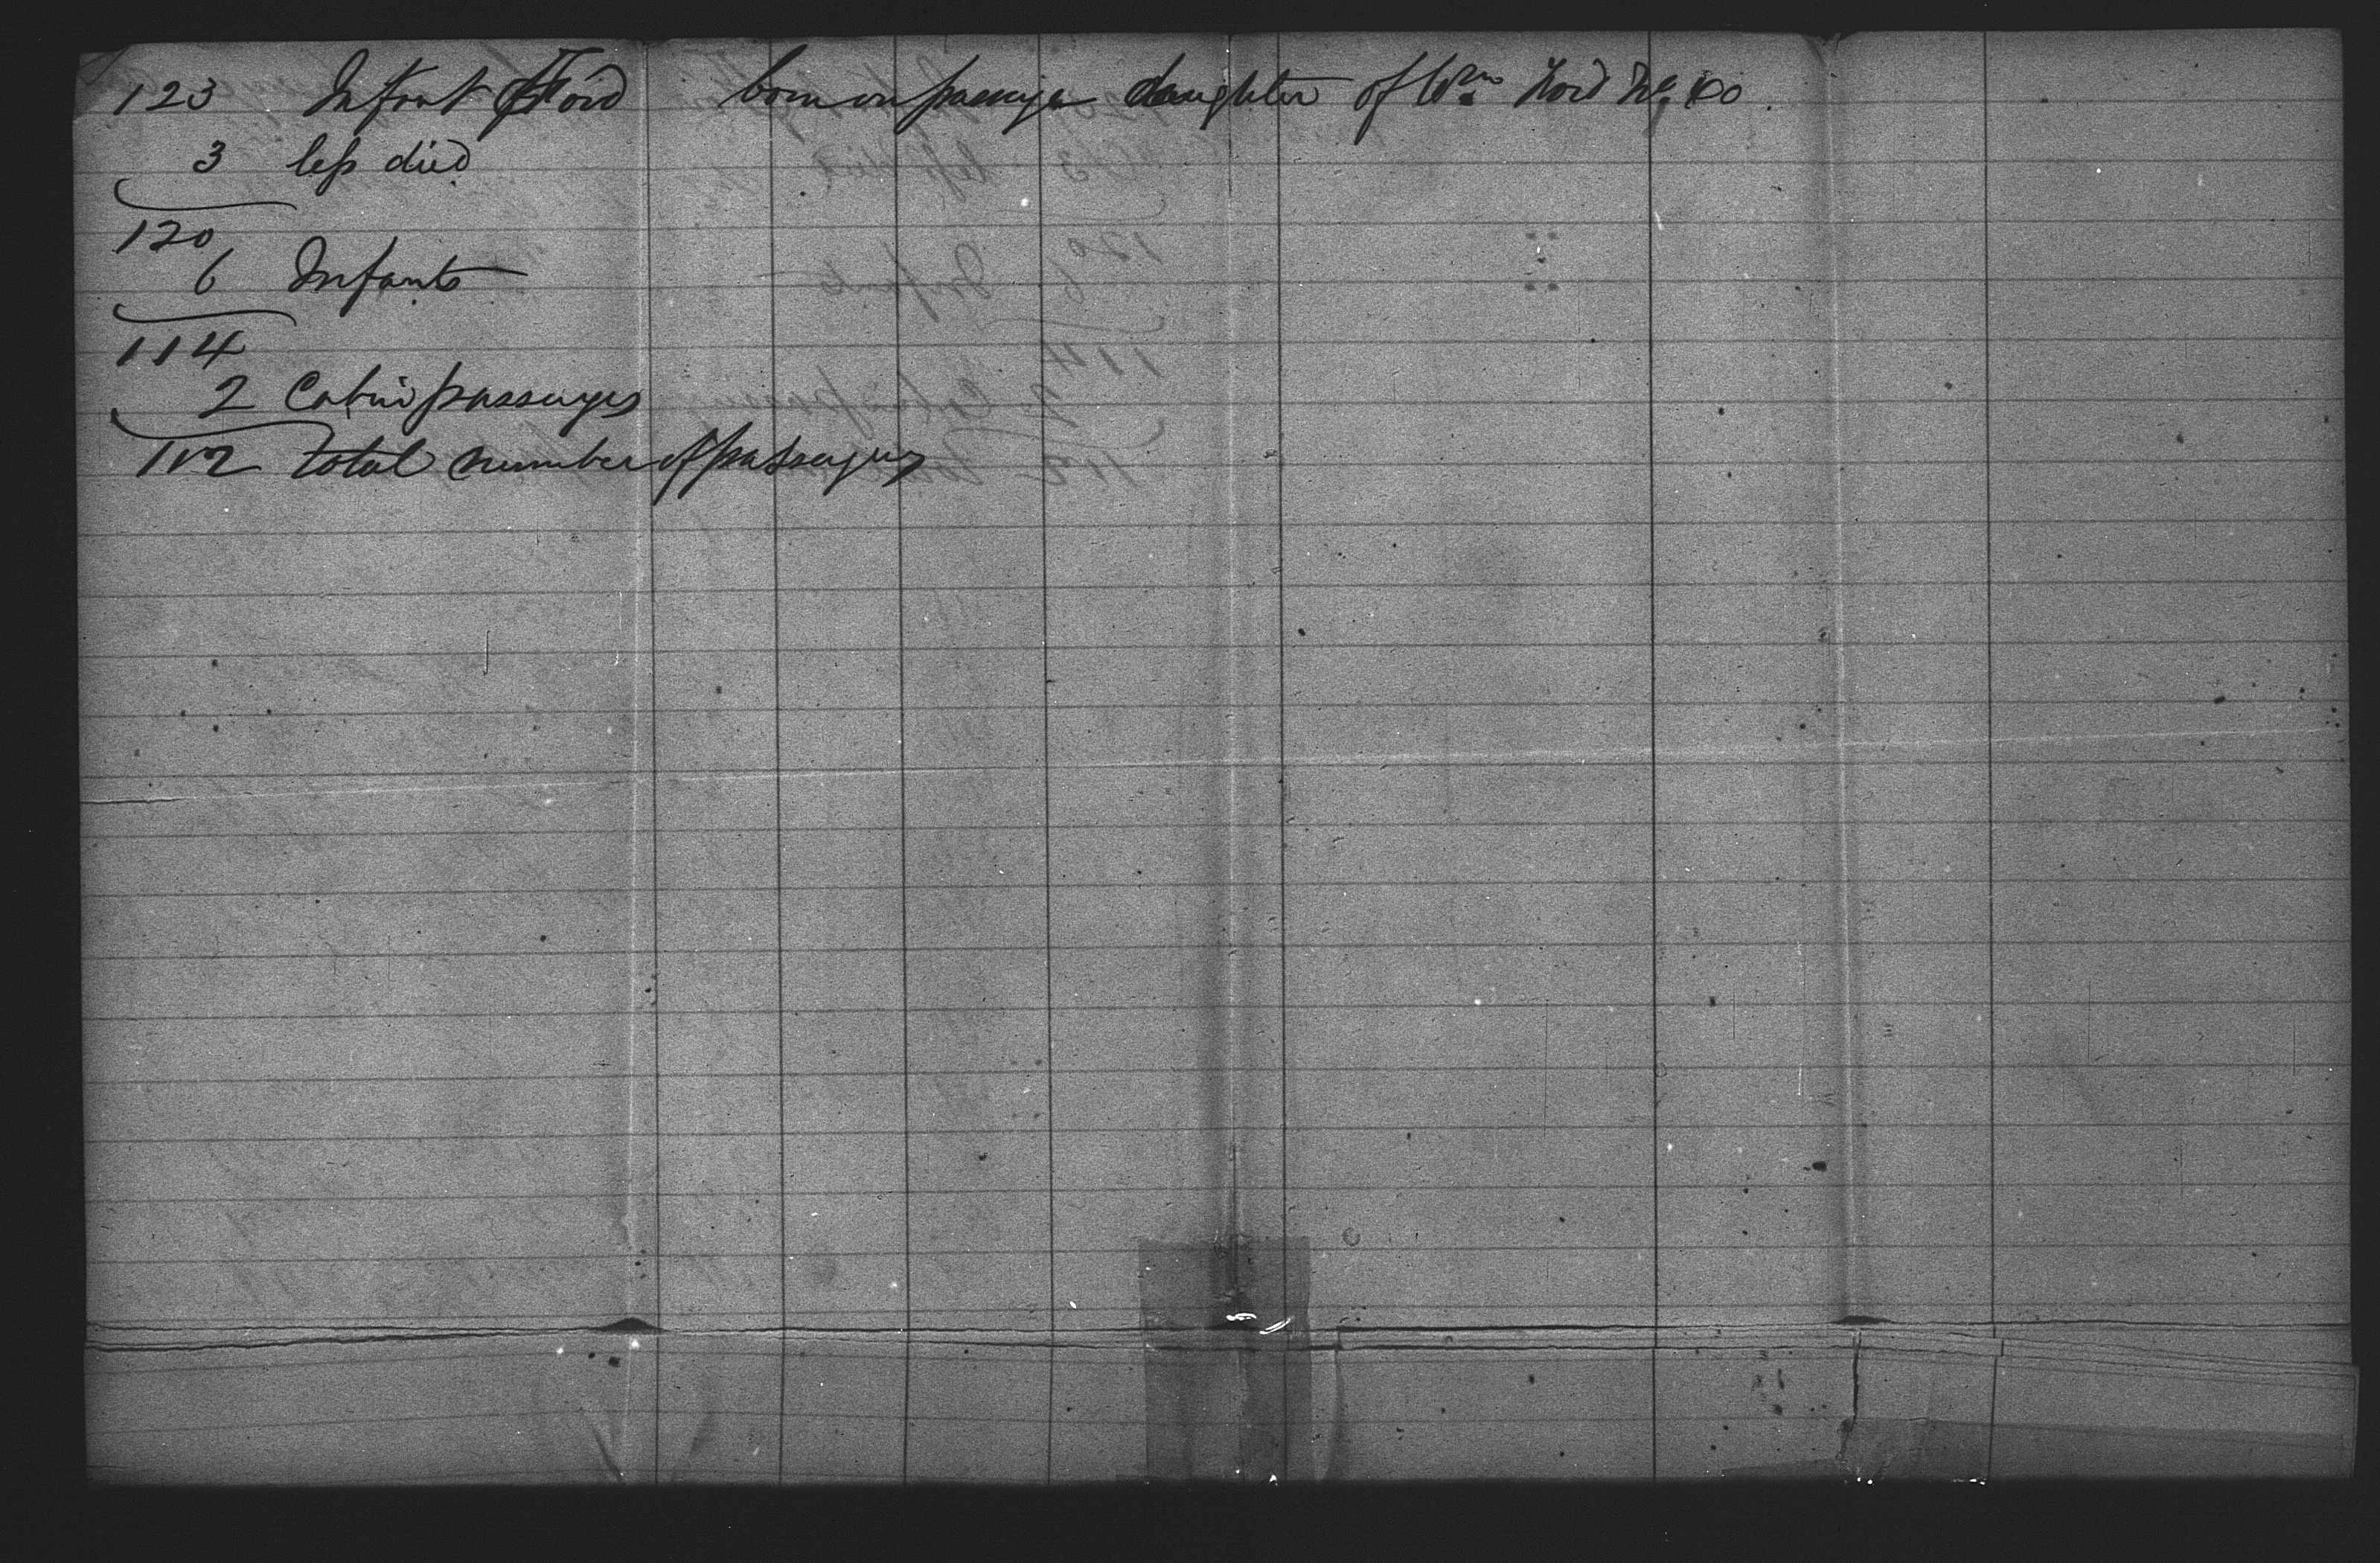 123 Infant Ford born on passage daughter of Wm Ford No 100.
3 less died
120
6 Infants
114
2 Cabin passenges
112 total number of passengers